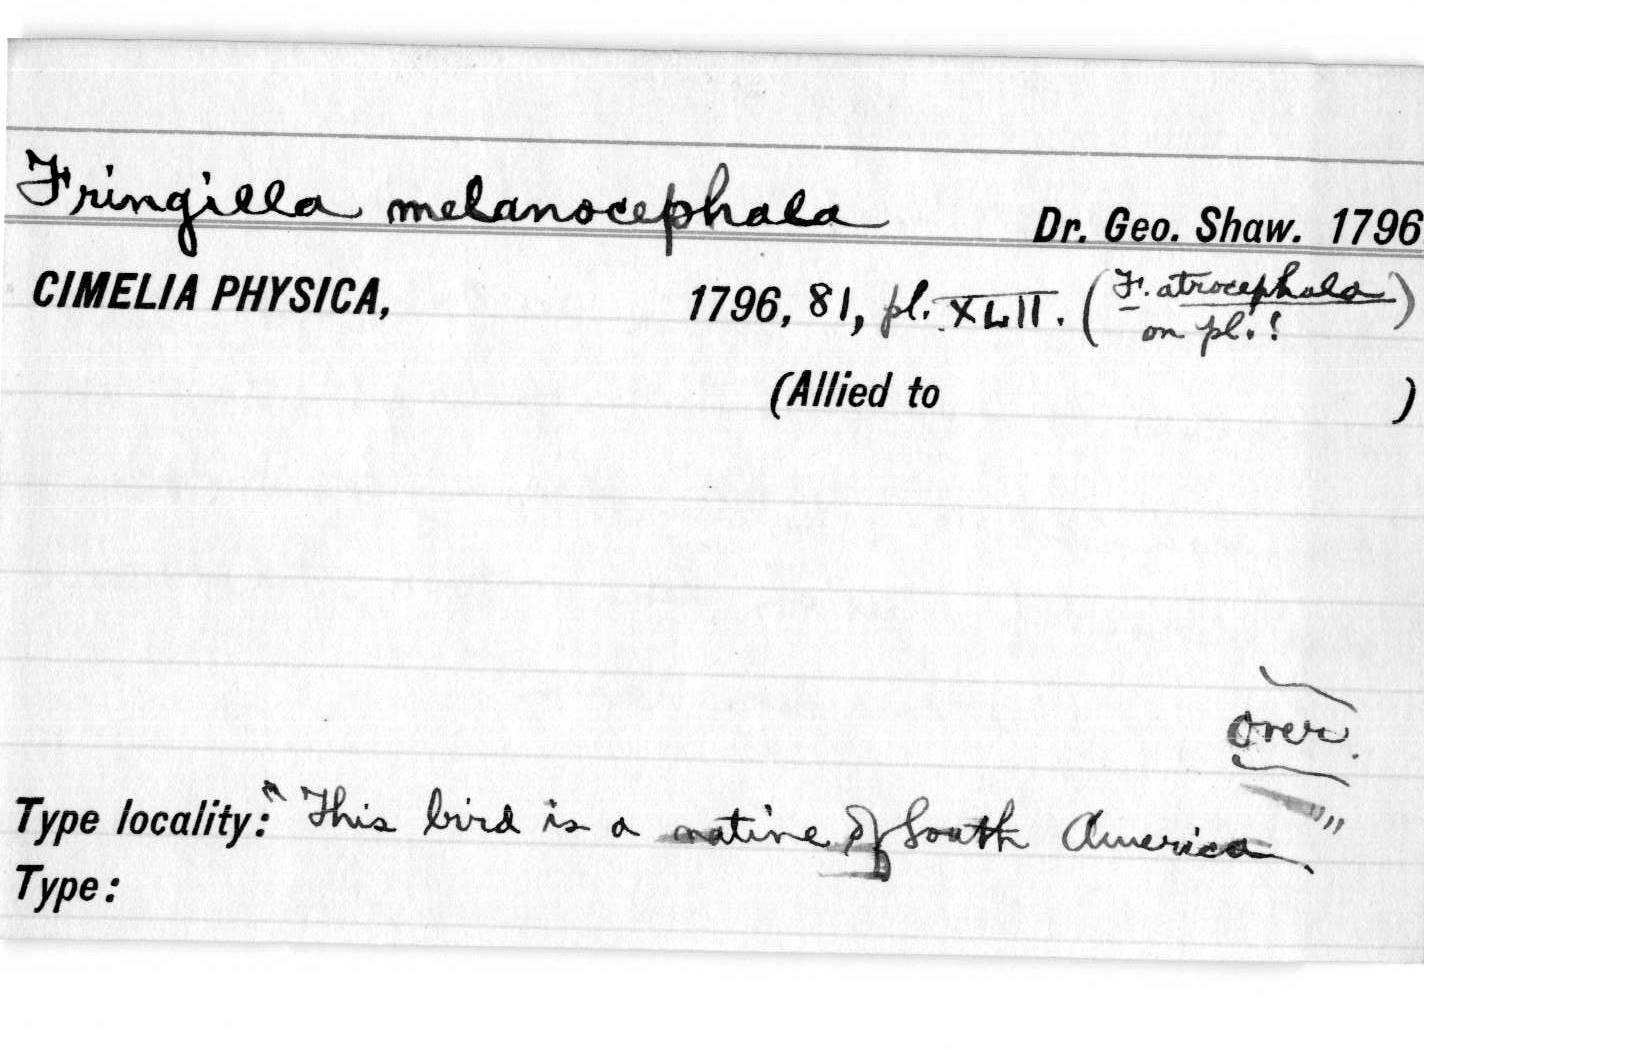 Fringilla melanocephala Dr. Geo. Shaw. 1796
CIMELIA PHYSICA, 1796, 81, pl. XLII. (F. atrocephala
on pl.!)
(Allied to )
over.
Type locality: "This bird is a native of South America."
Type: